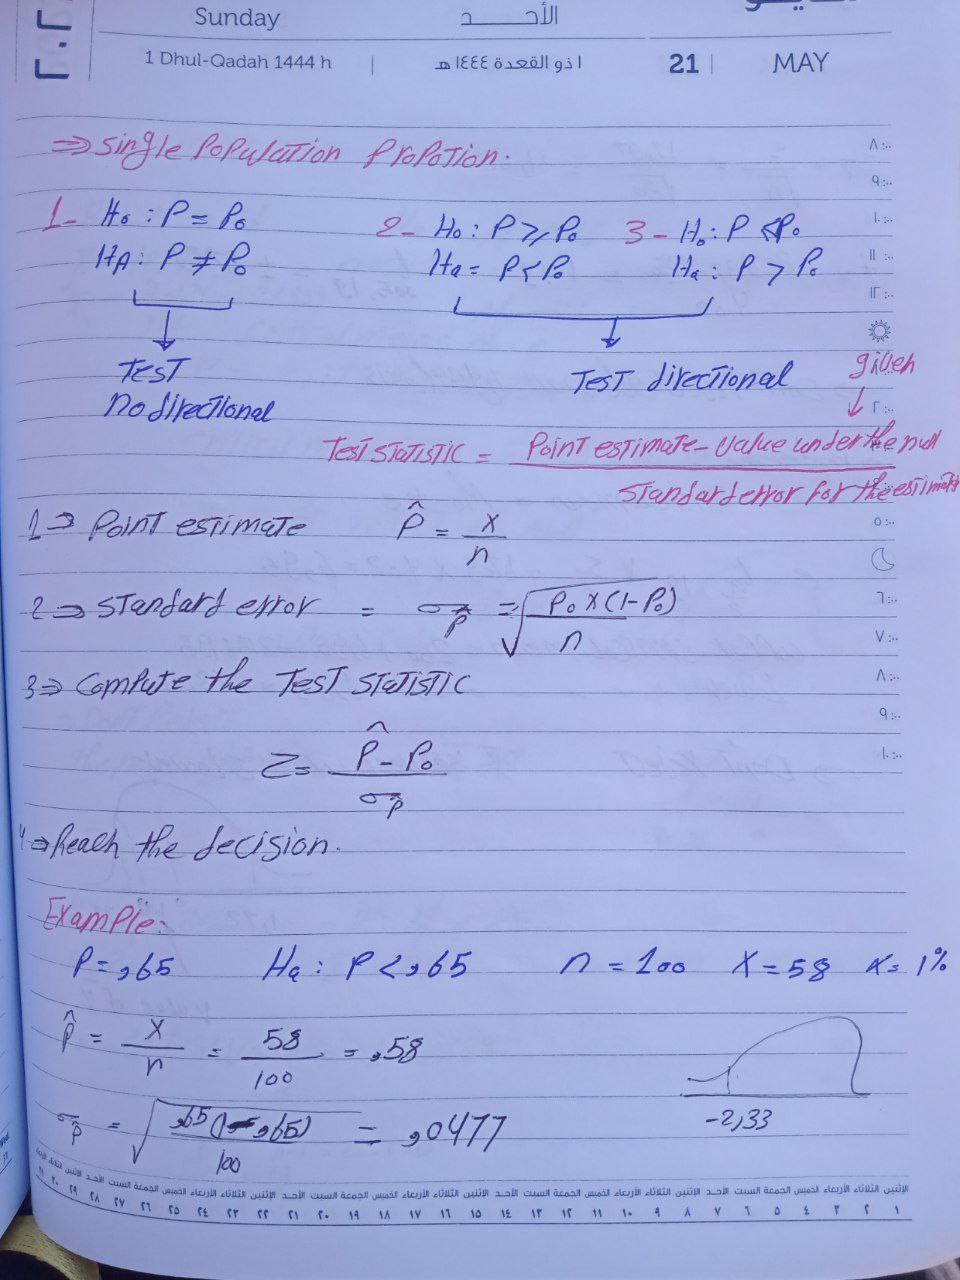 Sunday
الأحــــــد
1 Dhul-Qadah 1444 h | ١ ذو القعدة ١٤٤٤ هـ 21 | MAY
⇒ Single Population Propotion.
1- H₀ : P = P₀ 2- H₀ : P ≥ P₀ 3- H₀ : P ≤ P₀
HA : P ≠ P₀ Ha = P < P₀ Ha : P > P₀
Test Test directional given
No directional
Test statistic = Point estimate - Value under the null / Standard error for the estimate
1⇒ Point estimate P̂ = x / n
2⇒ Standard error = σp̂ = √(P₀ x (1-P₀) / n)
3⇒ Compute the Test statistic
Z = P̂ - P₀ / σp̂
4⇒ Reach the decision.
Example:
P = ,65 Ha : P < ,65 n = 100 X = 58 α = 1%
P̂ = x / n = 58 / 100 = ,58
-2,33
σp̂ = √(,65 (1-,65) / 100) = ,0477
الإثنين الثلاثاء الأربعاء الخميس الجمعة السبت الأحـد الإثنين الثلاثاء الأربعاء الخميس الجمعة السبت الأحـد الإثنين الثلاثاء الأربعاء الخميس الجمعة السبت الأحـد الإثنين الثلاثاء الأربعاء الخميس الجمعة السبت الأحـد الإثنين الثلاثاء الأربعاء
١ ٢ ٣ ٤ ٥ ٦ ٧ ٨ ٩ ١٠ ١١ ١٢ ١٣ ١٤ ١٥ ١٦ ١٧ ١٨ ١٩ ٢٠ ٢١ ٢٢ ٢٣ ٢٤ ٢٥ ٢٦ ٢٧ ٢٨ ٢٩ ٣٠ ٣١